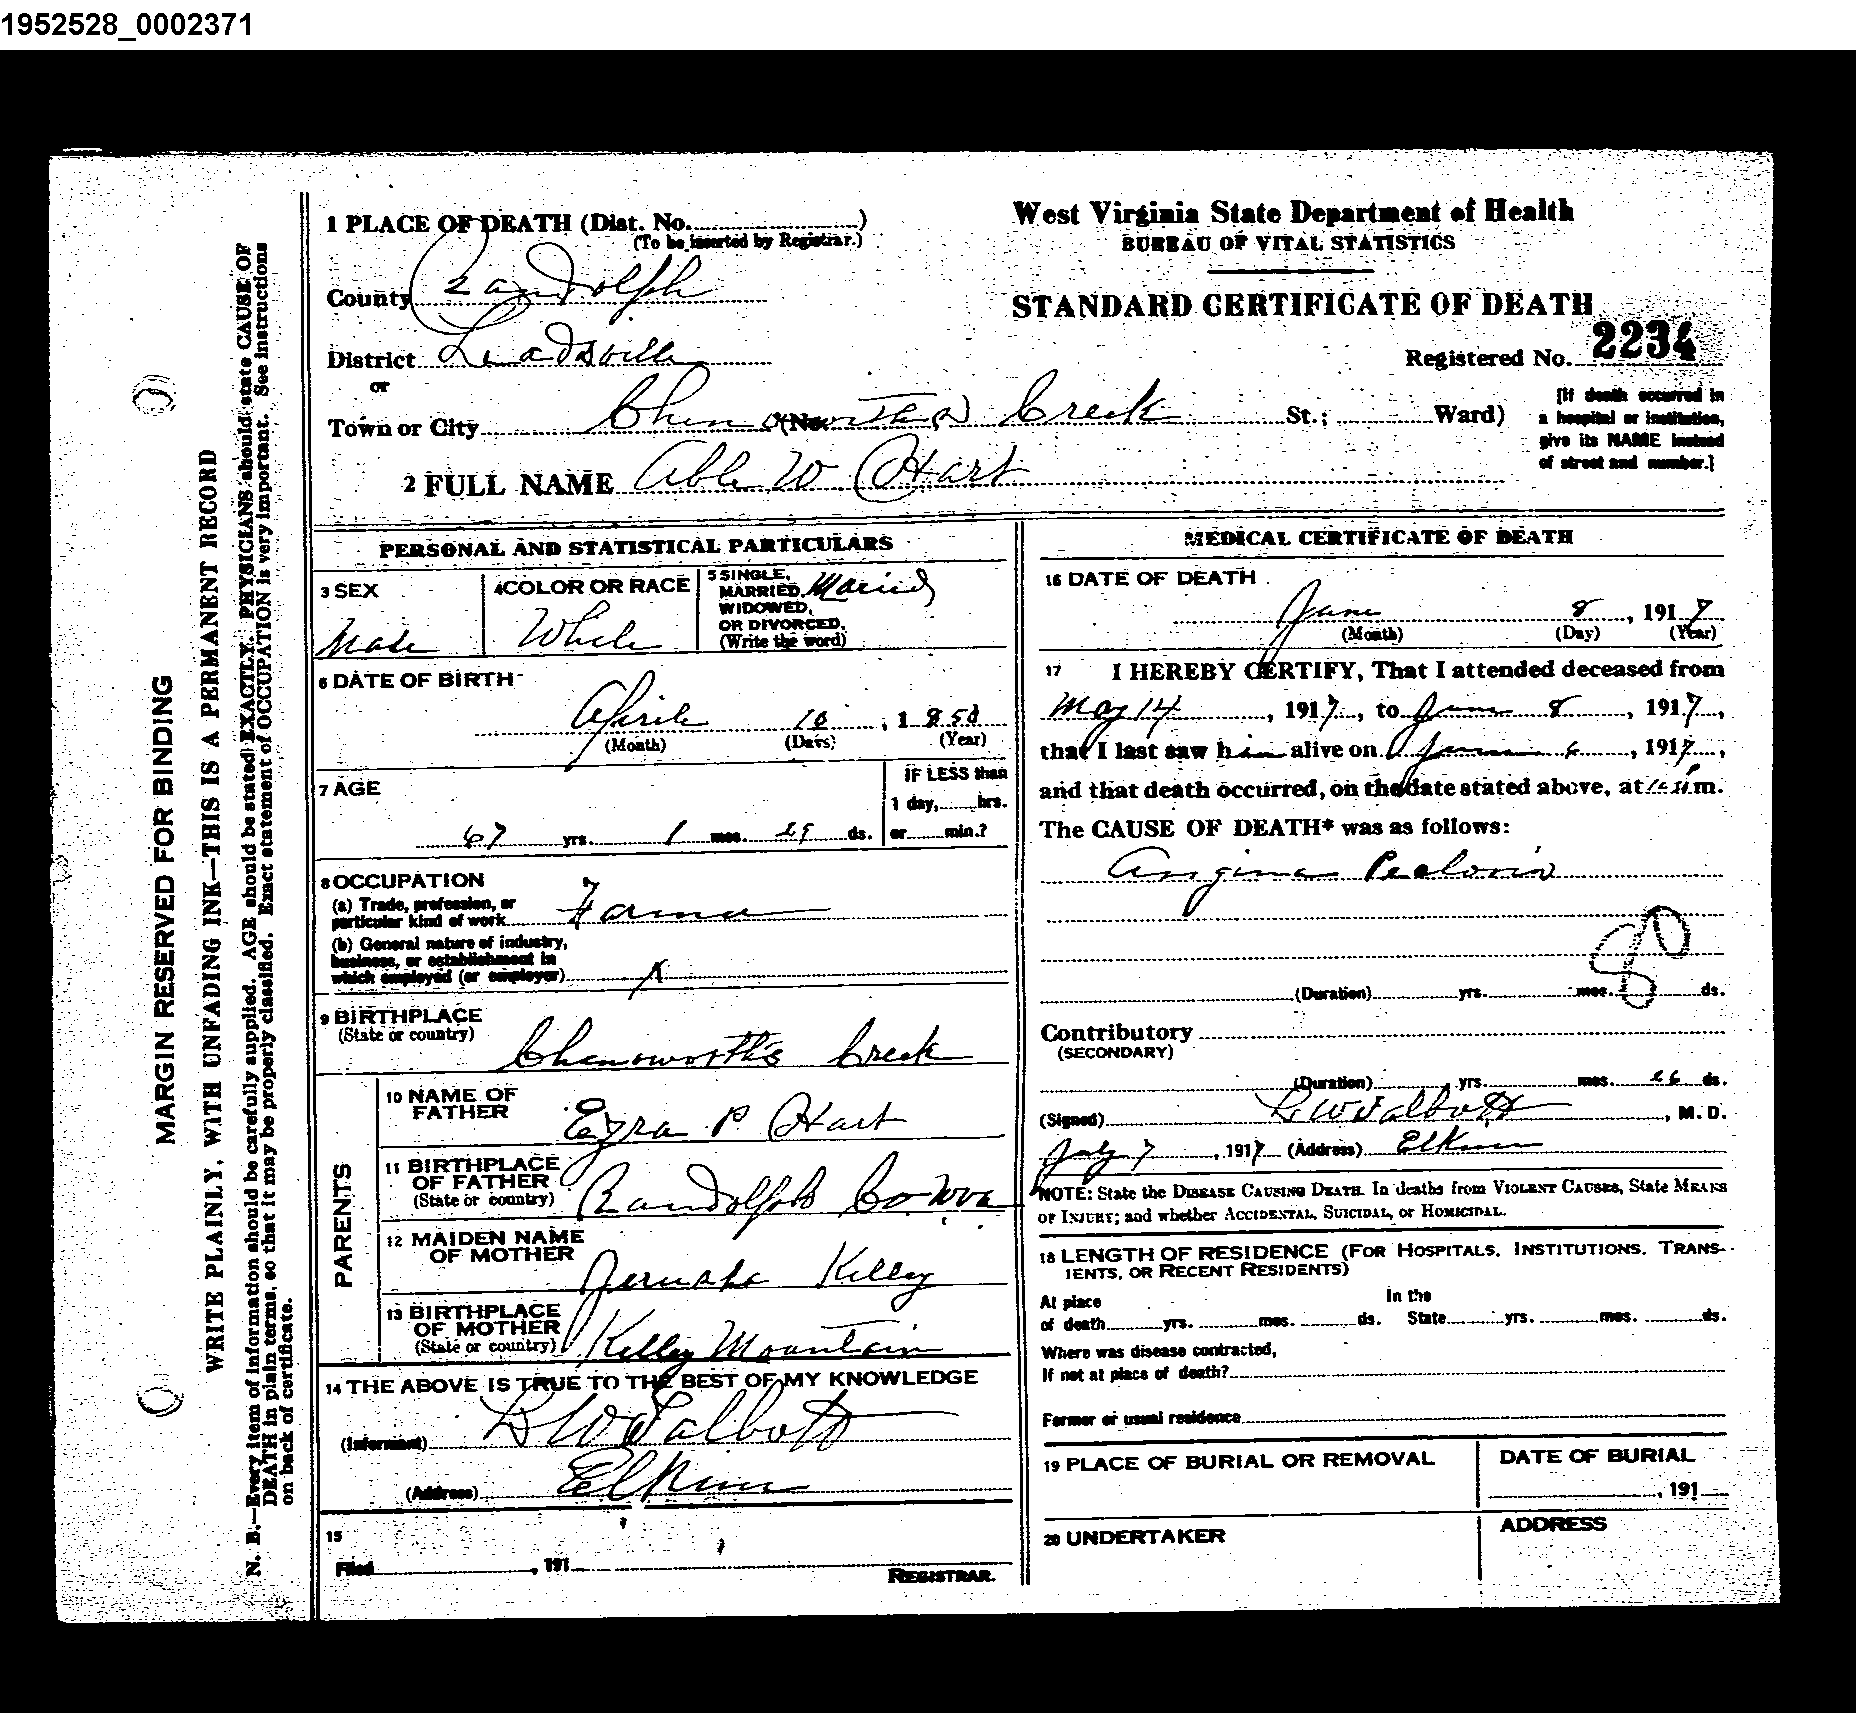 1952528_0002371
1 PLACE OF DEATH (Dist. No. )
(To be inserted by Registrar.)
County Randolph
District Leadsville
or
Town or City Chenoworths Creek (No. St.; Ward)
2 FULL NAME Able W Hart
West Virginia State Department of Health
BUREAU OF VITAL STATISTICS
STANDARD CERTIFICATE OF DEATH
Registered No. 2234
[If death occurred in
a hospital or institution,
give its NAME instead
of street and number.]
MARGIN RESERVED FOR BINDING
WRITE PLAINLY, WITH UNFADING INK—THIS IS A PERMANENT RECORD
N. B.—Every item of information should be carefully supplied. AGE should be stated EXACTLY. PHYSICIANS should state CAUSE OF
DEATH in plain terms, so that it may be properly classified. Exact statement of OCCUPATION is very important. See instructions
on back of certificate.
PERSONAL AND STATISTICAL PARTICULARS
3 SEX
Male
4 COLOR OR RACE
White
5 SINGLE,
MARRIED, Married
WIDOWED,
OR DIVORCED,
(Write the word)
6 DATE OF BIRTH
April 10, 1850
(Month) (Days) (Year)
7 AGE
67 yrs. 1 mos. 29 ds.
IF LESS than
1 day, hrs.
or min.?
8 OCCUPATION
(a) Trade, profession, or
particular kind of work Farmer
(b) General nature of industry,
business, or establishment in
which employed (or employer) x
9 BIRTHPLACE
(State or country) Chenoworths Creek
PARENTS
10 NAME OF
FATHER Ezra P Hart
11 BIRTHPLACE
OF FATHER
(State or country) Randolph Co. W Va
12 MAIDEN NAME
OF MOTHER Kelley
13 BIRTHPLACE
OF MOTHER
(State or country) Kelley Mountain
14 THE ABOVE IS TRUE TO THE BEST OF MY KNOWLEDGE
(Informant) L W Talbott
(Address) Elkins
15
Filed , 191
REGISTRAR.
MEDICAL CERTIFICATE OF DEATH
16 DATE OF DEATH
June 8, 1917
(Month) (Day) (Year)
17 I HEREBY CERTIFY, That I attended deceased from
May 14, 1917, to June 8, 1917,
that I last saw him alive on June 6, 1917,
and that death occurred, on the date stated above, at m.
The CAUSE OF DEATH* was as follows:
Angina Pectoris
(Duration) yrs. mos. ds.
Contributory
(SECONDARY)
(Duration) yrs. mos. 26 ds.
(Signed) L W Talbott, M. D.
July 7, 1917 (Address) Elkins
NOTE: State the DISEASE CAUSING DEATH. In deaths from VIOLENT CAUSES, State MEANS
OF INJURY; and whether ACCIDENTAL, SUICIDAL, or HOMICIDAL.
18 LENGTH OF RESIDENCE (FOR HOSPITALS, INSTITUTIONS, TRANS-
IENTS, OR RECENT RESIDENTS)
At place In the
of death yrs. mos. ds. State yrs. mos. ds.
Where was disease contracted,
If not at place of death?
Former or usual residence
19 PLACE OF BURIAL OR REMOVAL
DATE OF BURIAL
, 191
20 UNDERTAKER
ADDRESS